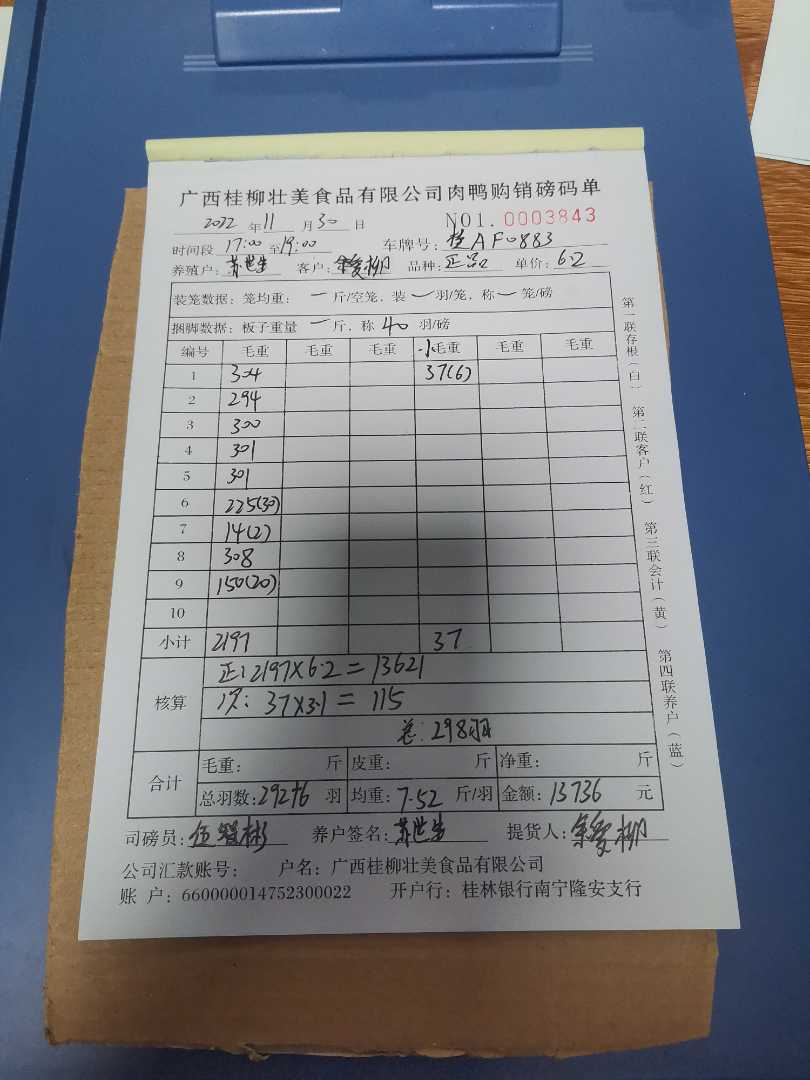 广西桂柳壮美食品有限公司肉鸭购销磅码单
2022 年 11 月 30 日 NO1. 0003843
时间段 17:00 至 19:00 车牌号: 桂AF0883
养殖户: 苏世生 客户: 柳 品种: 正品 单价: 6.2
装笼数据: 笼均重: 一 斤/空笼, 装 一 羽/笼, 称 一 笼/磅
捆脚数据: 板子重量 一 斤, 称 40 羽/磅
编号 毛重 毛重 毛重 小毛重 毛重 毛重
1 304 37(6)
2 294
3 300
4 301
5 301
6 225(30)
7 14(2)
8 308
9 150(20)
10
小计 2197 37
核算 正:2197×6.2=13621
次: 37×3.1=115
总:298羽
合计 毛重: 斤 皮重: 斤 净重: 斤
总羽数:292+6 羽 均重: 7.52 斤/羽 金额: 13736 元
司磅员: 伍 彬 养户签名: 苏世生 提货人: 柳
公司汇款账号: 户名: 广西桂柳壮美食品有限公司
账 户: 660000014752300022 开户行: 桂林银行南宁隆安支行
第一联存根(白) 第二联客户(红) 第三联会计(黄) 第四联养户(蓝)